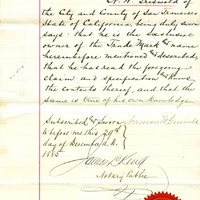 N. W. Griswold of
the City and County of San Francisco
State of California, being duly sworn
says: that he is the exclusive
owner of the Trade Mark & name
hereinbefore mentioned & described,
that he has read the foregoing
claim and specification & knows
the contents thereof, and that the
same is true of his own knowledge
Subscribed & Sworn Norman W. Griswold
to before me this 29th
day of December A.D.
1885
James L. King
Notary Public